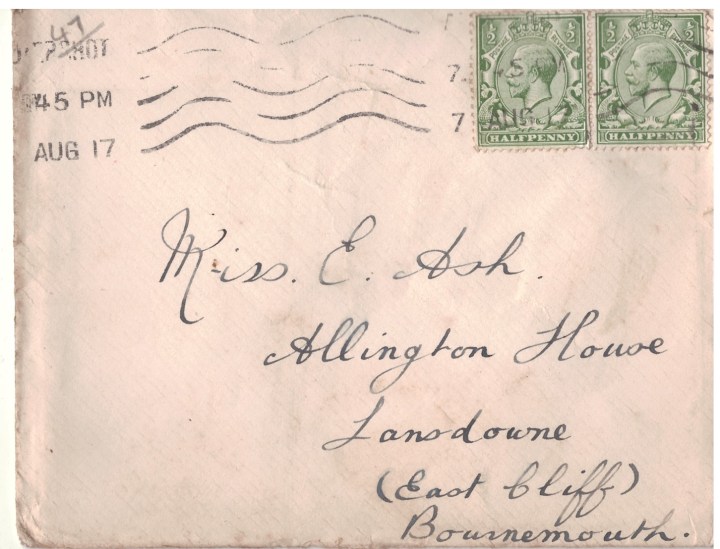 47
45 PM
AUG 17
7
AUG
HALFPENNY
HALFPENNY
Miss. E. Ash.
Allington House
Lansdowne
(East Cliff)
Bournemouth.